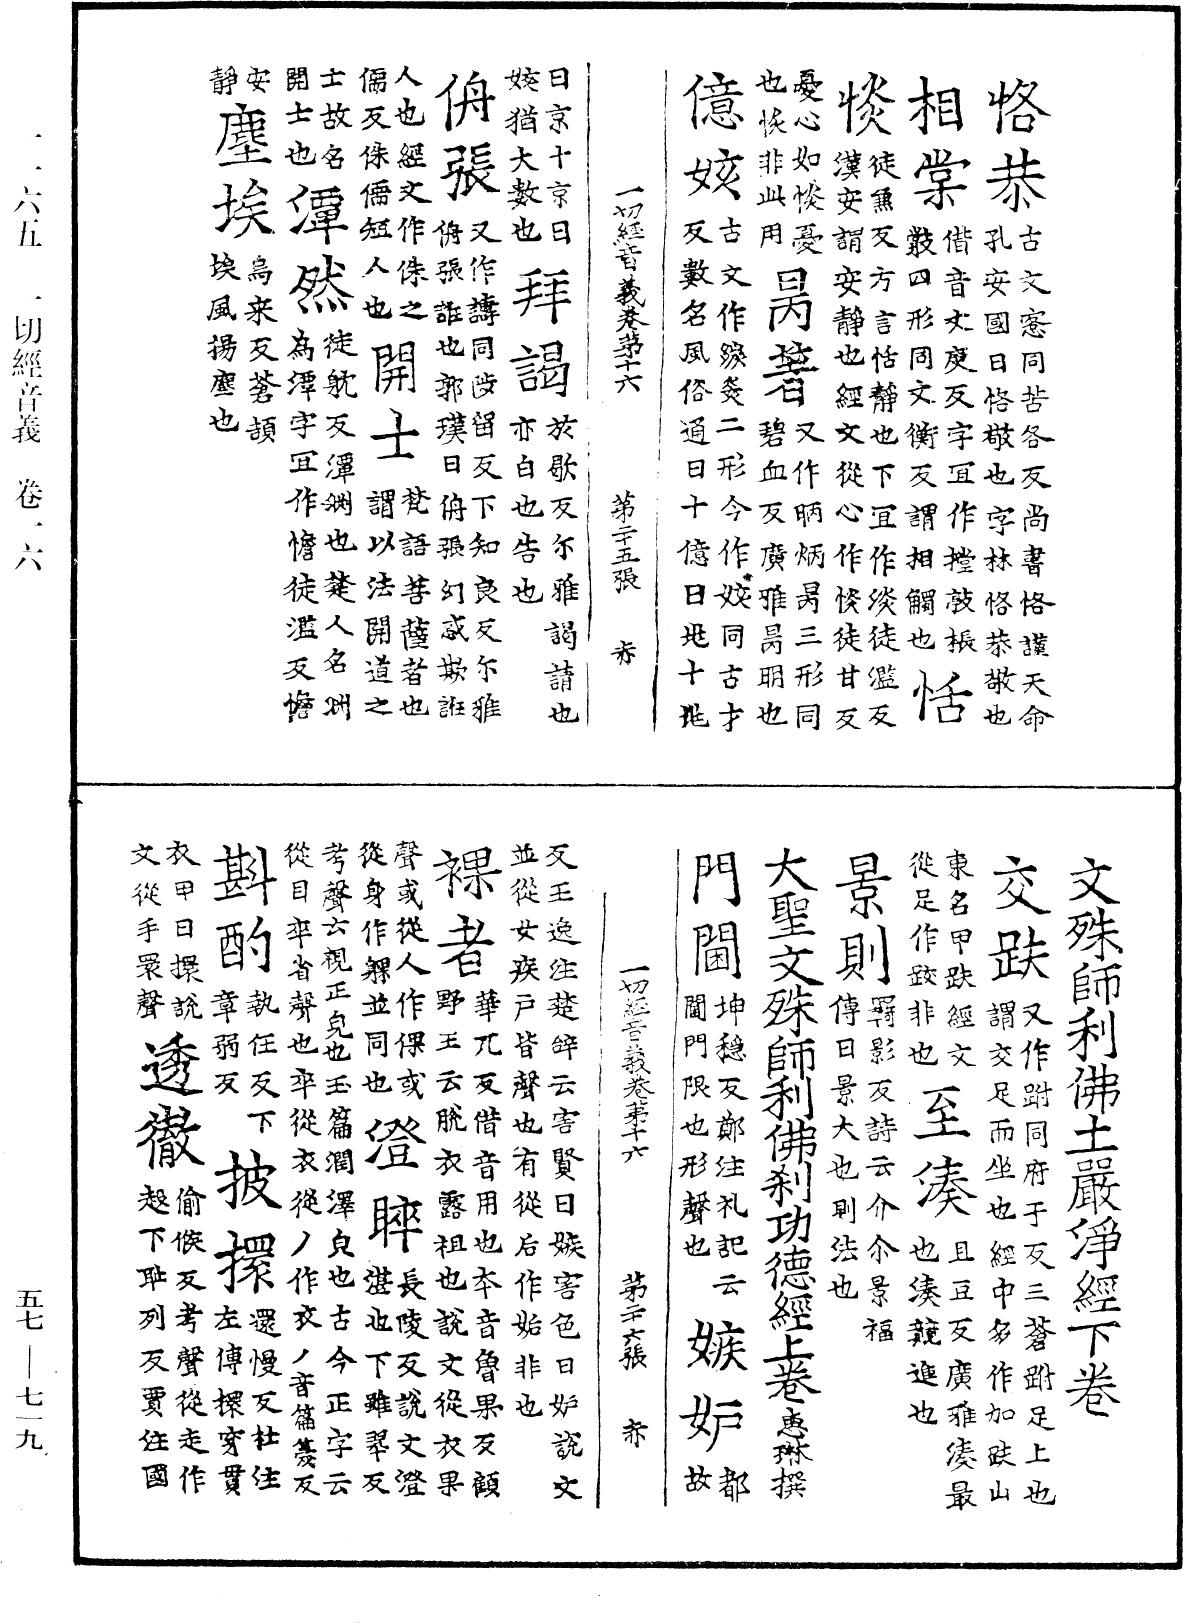 恪恭古文愙同苦各反尚書恪謹天命孔安國曰恪敬也字林恪恭敬也
相棠借音丈庚反字冝作摚敨棖𣪠四形同文衡反謂相觸也恬
惔徒兼反方言恬靜也下冝作淡徒濫反漢安謂安靜也經文從心作惔徒甘反
憂心如惔憂也惔非此用昺著又作昞炳㫤三形同碧血反廣雅昺明也
億姟古文作㚇二形今作姟同古才反數名風俗通曰十億曰兆十兆
一切經音義卷第十六　第二十五張　赤
曰京十京曰姟猶大數也拜謁於歇反尒雅謁請也亦白也告也
侜張又作譸同陟留反下知良反尒雅侜張誑也郭璞曰侜張幻惑欺誑
人也經文作侏之儒反侏儒短人也開士梵語菩薩者也謂以法開道之
士故名開士也潭然徒躭反潭𣶏也楚人名𣶏為潭字冝作憺徒濫反憺
安靜塵埃烏來反蒼頡埃風揚塵也
文殊師利佛土嚴淨經下卷
交趺又作跗同府于反三蒼跗足上也謂交足而坐也經中多作加趺山
東名甲趺經文從足作跤非也至湊且豆反廣雅湊最也湊競進也
景則羇影反詩云介尒景福傳曰景大也則法也
大聖文殊師利佛剎功德經上卷惠琳撰
門閫坤穩反鄭注礼記云閫門限也形聲也嫉妒都故
一切經音義卷第十六　第二十六張　赤
反王逸注楚辭云害賢曰嫉害色曰妒說文並從女疾戶皆聲也有從后作姤非也
裸者華瓦反借音用也本音魯果反顧野王云脫衣露袒也說文從衣果
聲或從人作倮或從身作躶並同也澄睟長陵反說文澄湛也下雖翠反
考聲云視正皃也玉篇潤澤皃也古今正字云從目卒省聲也卒從衣從丿作衣丿音篇蔑反
斟酌執任反下章弱反披擐還慢反杜注左傳擐穿貫
衣甲曰擐說文從手瞏聲透徹偷候反考聲從走作趒下耻列反賈注國
一一六五　一切經音義　卷一六
五七—七一九